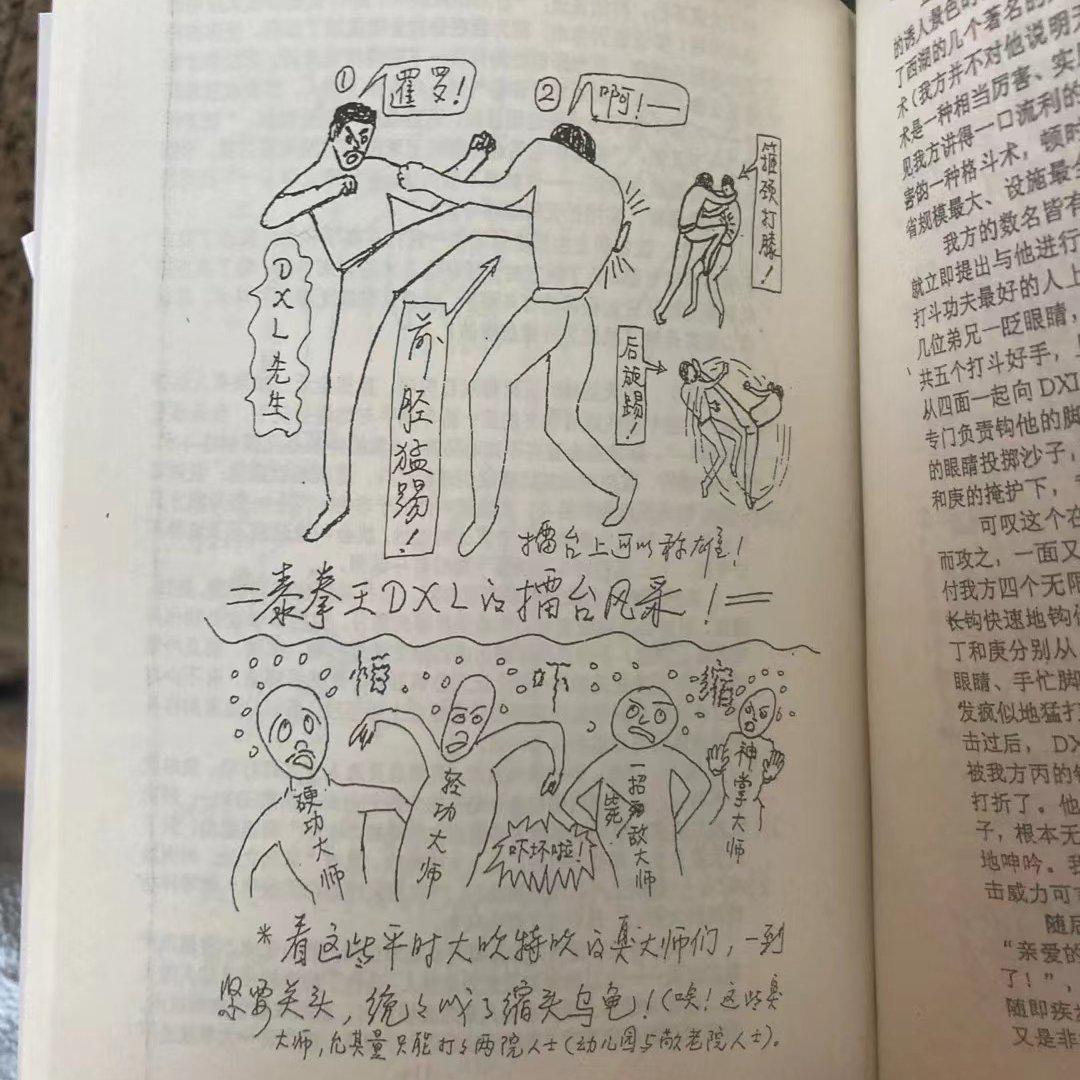 ①
暹罗！
②
啊！—
箍颈打膝！
DXL先生
前胫猛踢！
后旋踢！
擂台上可以称雄！
=泰拳王DXL的擂台风采！=
帽
吓
缩
硬功大师
轻功大师
吓坏啦！
一招毙敌大师
神掌大师
*看这些平时大吹特吹的臭大师们，一到
紧要关头，统统成了缩头乌龟！（唉！这些臭
大师，充其量只能打了两院人士（幼儿园与敬老院人士）。
的诱人景色时
丁西湖的几个著名的
术（我方并不对他说明
术是一种相当厉害、实
见我方讲得一口流利的
害的一种格斗术，顿时
省规模最大、设施最全
我方的数名皆有
就立即提出与他进行
打斗功夫最好的人上
几位弟兄一眨眼睛，
共五个打斗好手，
从四面一起向DXL
专门负责钩他的脚
的眼睛投掷沙子，
和庚的掩护下，
可叹这个在
而攻之，一面又
付我方四个无限
长钩快速地钩住
丁和庚分别从
眼睛、手忙脚
发疯似地猛打
击过后，DX
被我方丙的
打折了。他
子，根本无
地呻吟。我
击威力可
随后
“亲爱的
了！”，
随即疾
又是非